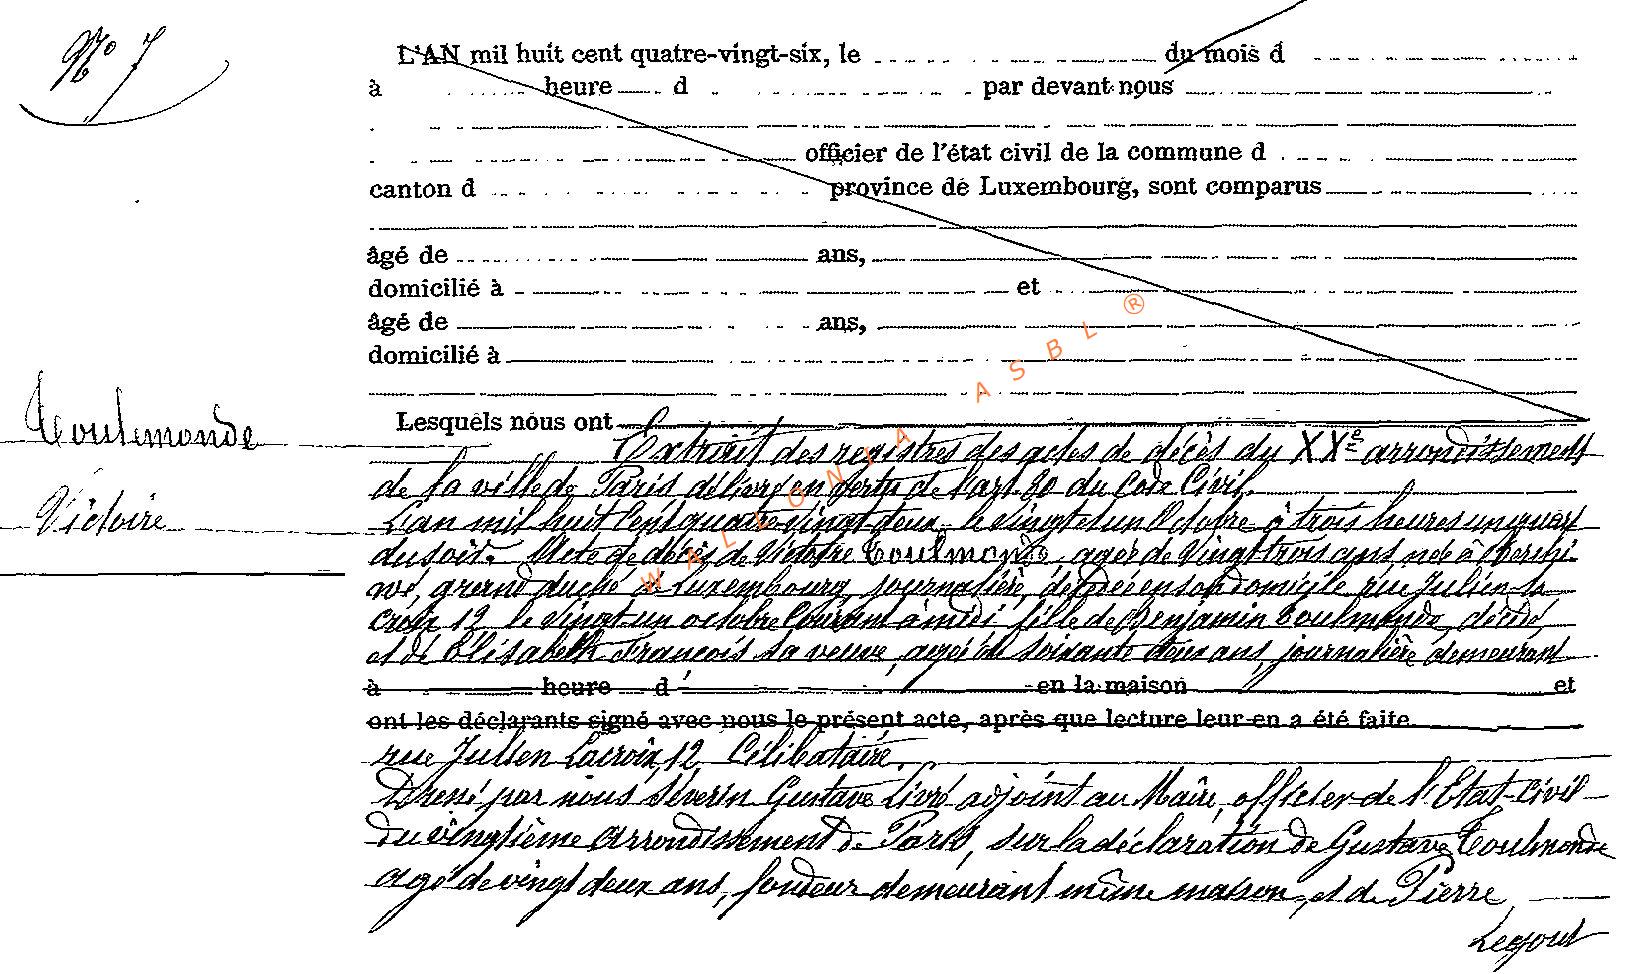 N° 7
L'AN mil huit cent quatre-vingt-six, le du mois d
à heure d par devant nous
officier de l'état civil de la commune d
canton d province de Luxembourg, sont comparus
âgé de ans,
domicilié à et
âgé de ans,
domicilié à
Lesquels nous ont
Toulemonde
Victoire
Extrait des registres des actes de décès du XXe arrondissement
de la ville de Paris délivré en vertu de l'art. 80 du Code Civil.
L'an mil huit cent quatre vingt deux, le vingt et un Octobre à trois heures un quart
du soir. Acte de décès de Victoire Toulmonde, agée de vingt trois ans, née à
grand duché de Luxembourg, journalière, décédée en son domicile rue Julien la
croix 12 le vingt un octobre courant à midi fille de Benjamin Toulmonde, décédé,
et de Elisabeth François sa veuve, agée de soixante deux ans, journalière demeurant
à heure d en la maison et
ont les déclarants signé avec nous le présent acte, après que lecture leur en a été faite
rue Julien Lacroix, 12, Célibataire.
Dressé par nous Séverin Gustave Livré adjoint au Maire, officier de l'Etat-Civil
du vingtième arrondissement de Paris, sur la déclaration de Gustave Toulmonde
agé de vingt deux ans, fondeur demeurant même maison, et de Pierre
Legout
WALLONIA ASBL ®